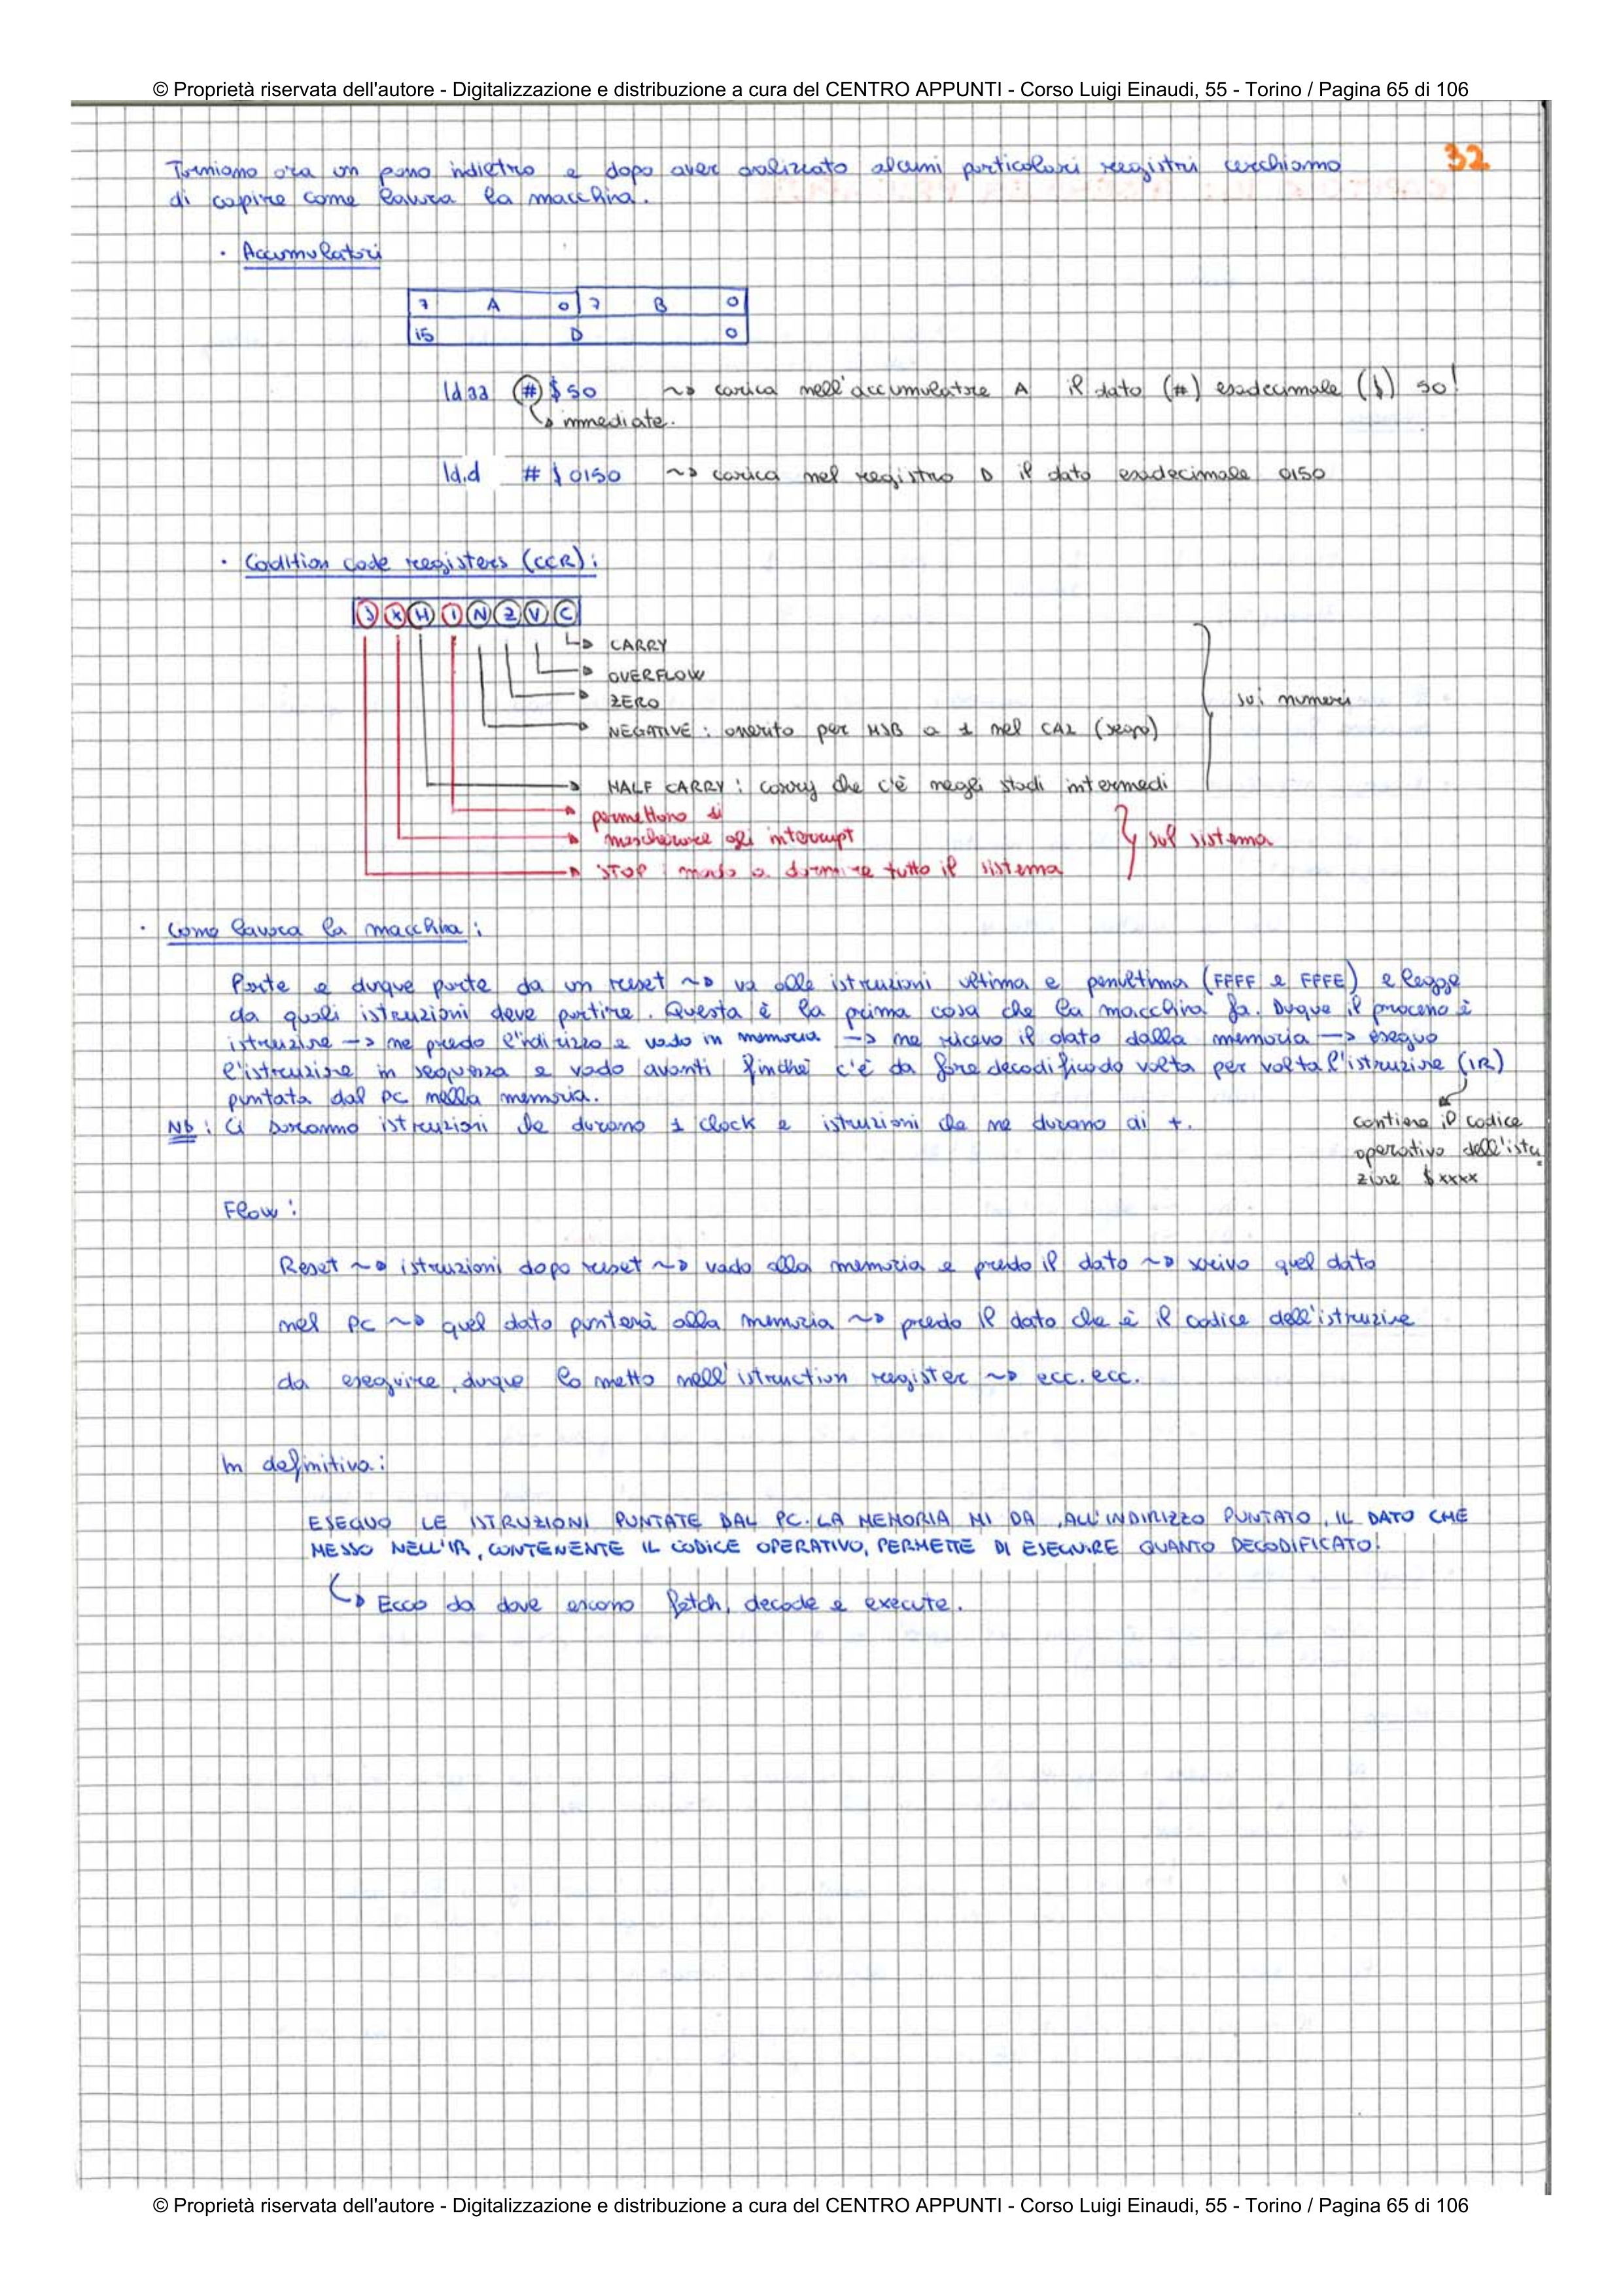 © Proprietà riservata dell'autore - Digitalizzazione e distribuzione a cura del CENTRO APPUNTI - Corso Luigi Einaudi, 55 - Torino / Pagina 65 di 106
32
Torniamo ora un passo indietro e dopo aver analizzato alcuni particolari registri cerchiamo
di capire come lavora la macchina.
· Accumulatori
7 A 0 7 B 0
15 D 0
ldaa # $50 ~> carica nell'accumulatore A il dato (#) esadecimale ($) 50!
↳ immediate.
ld.d # $0150 ~> carica nel registro D il dato esadecimale 0150
· Codition code registers (CCR):
S X H I N Z V C
CARRY
OVERFLOW
ZERO
sui numeri
NEGATIVE: asserito per MSB a 1 nel CA2 (segno)
HALF CARRY: carry che c'è negli stadi intermedi
permettono di
mascherare gli interrupt
sul sistema
STOP: mando a dormire tutto il sistema
· Come lavora la macchina:
Parte e dunque parte da un reset ~> va alle istruzioni ultima e penultima (FFFF e FFFE) e legge
da quali istruzioni deve partire. Questa è la prima cosa che la macchina fa. Dunque il processo è
istruzione -> ne prendo l'indirizzo e vado in memoria -> ne ricavo il dato dalla memoria -> eseguo
l'istruzione in sequenza e vado avanti finchè c'è da fare decodificando volta per volta l'istruzione (IR)
puntata dal PC nella memoria.
NB: Ci saranno istruzioni che durano 1 clock e istruzioni che ne durano di +.
contiene il codice
operativo dell'istru
zione $xxxx
Flow:
Reset ~> istruzioni dopo reset ~> vado alla memoria e prendo il dato ~> scrivo quel dato
nel PC ~> quel dato punterà alla memoria ~> prendo il dato che è il codice dell'istruzione
da eseguire, dunque lo metto nell'istruction register ~> ecc. ecc.
In definitiva:
ESEGUO LE ISTRUZIONI PUNTATE DAL PC. LA MEMORIA MI DA, ALL'INDIRIZZO PUNTATO, IL DATO CHE
MESSO NELL'IR, CONTENENTE IL CODICE OPERATIVO, PERMETTE DI ESEGUIRE QUANTO DECODIFICATO!
↳ Ecco da dove escono fetch, decode e execute.
© Proprietà riservata dell'autore - Digitalizzazione e distribuzione a cura del CENTRO APPUNTI - Corso Luigi Einaudi, 55 - Torino / Pagina 65 di 106